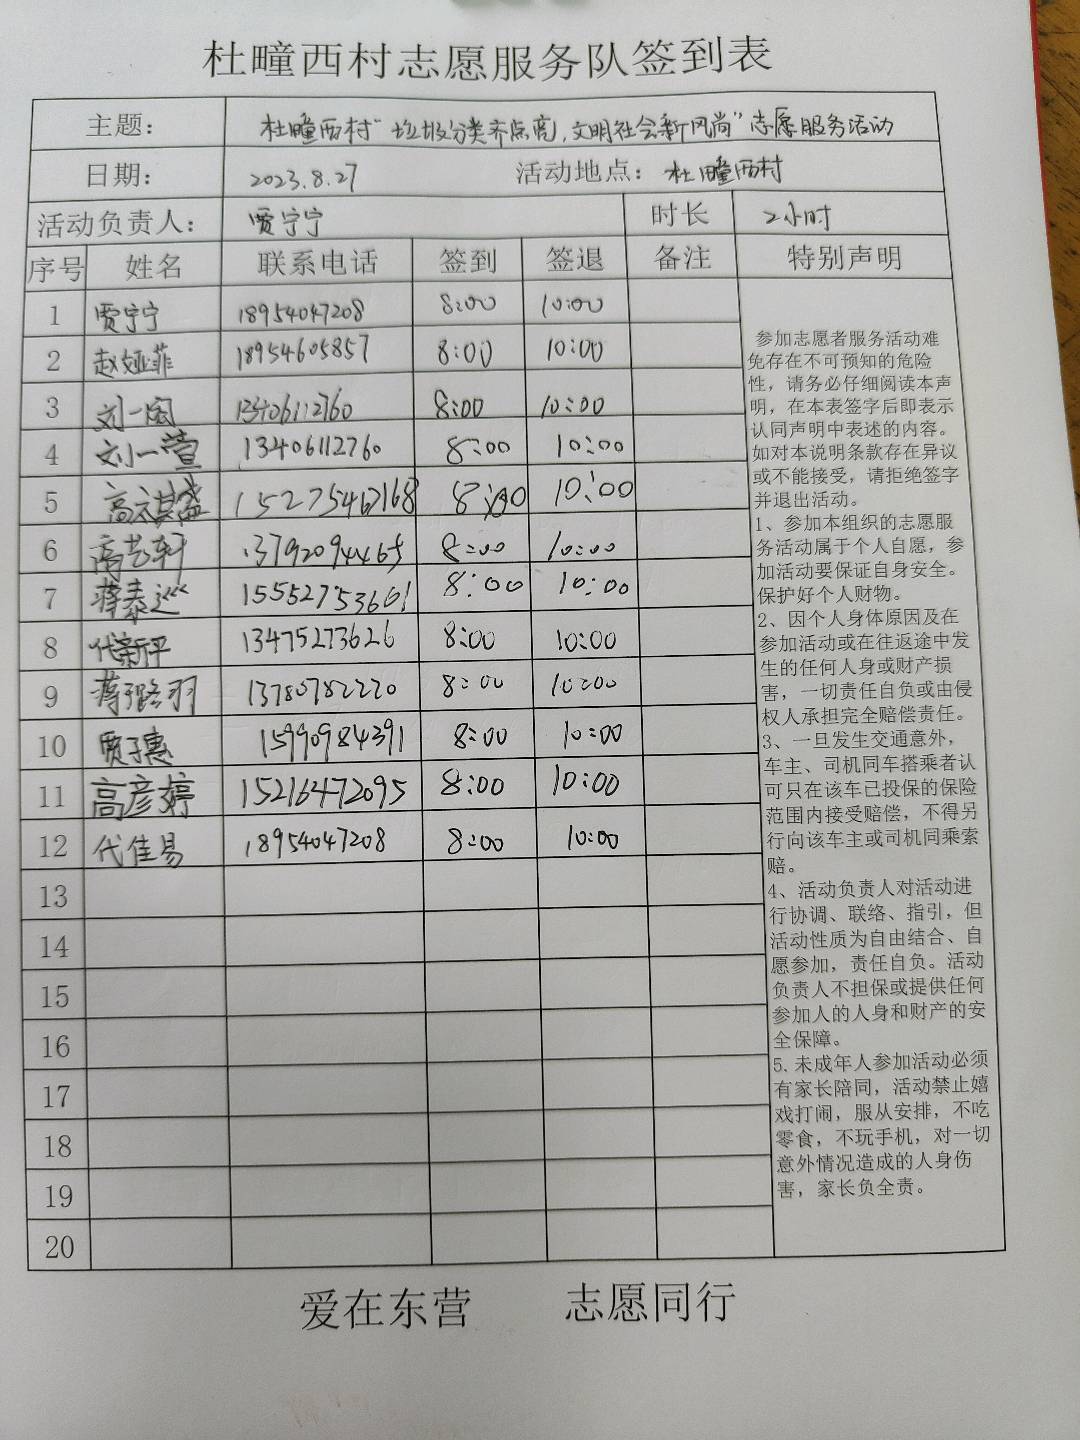 杜疃西村志愿服务队签到表
主题： 杜疃西村“垃圾分类齐点亮,文明社会新风尚”志愿服务活动
日期： 2023.8.27 活动地点： 杜疃西村
活动负责人： 贾宁宁 时长 2小时
序号 姓名 联系电话 签到 签退 备注 特别声明
1 贾宁宁 18954047208 8:00 10:00
2 赵娅菲 18954605857 8:00 10:00
3 刘一阁 13406112760 8:00 10:00
4 刘一萱 13406112760 8:00 10:00
5 高六其盛 15275467168 8:00 10:00
6 高艺轩 13792094465 8:00 10:00
7 蒋泰巡 15552753661 8:00 10:00
8 代新平 13475273626 8:00 10:00
9 蒋羽 13780782220 8:00 10:00
10 贾子惠 15990984391 8:00 10:00
11 高彦婷 15216472095 8:00 10:00
12 代佳易 18954047208 8:00 10:00
13
14
15
16
17
18
19
20
参加志愿者服务活动难
免存在不可预知的危险
性，请务必仔细阅读本声
明，在本表签字后即表示
认同声明中表述的内容。
如对本说明条款存在异议
或不能接受，请拒绝签字
并退出活动。
1、参加本组织的志愿服
务活动属于个人自愿，参
加活动要保证自身安全。
保护好个人财物。
2、因个人身体原因及在
参加活动或在往返途中发
生的任何人身或财产损
害，一切责任自负或由侵
权人承担完全赔偿责任。
3、一旦发生交通意外，
车主、司机同车搭乘者认
可只在该车已投保的保险
范围内接受赔偿，不得另
行向该车主或司机同乘索
赔。
4、活动负责人对活动进
行协调、联络、指引，但
活动性质为自由结合、自
愿参加，责任自负。活动
负责人不担保或提供任何
参加人的人身和财产的安
全保障。
5.未成年人参加活动必须
有家长陪同，活动禁止嬉
戏打闹，服从安排，不吃
零食，不玩手机，对一切
意外情况造成的人身伤
害，家长负全责。
爱在东营 志愿同行